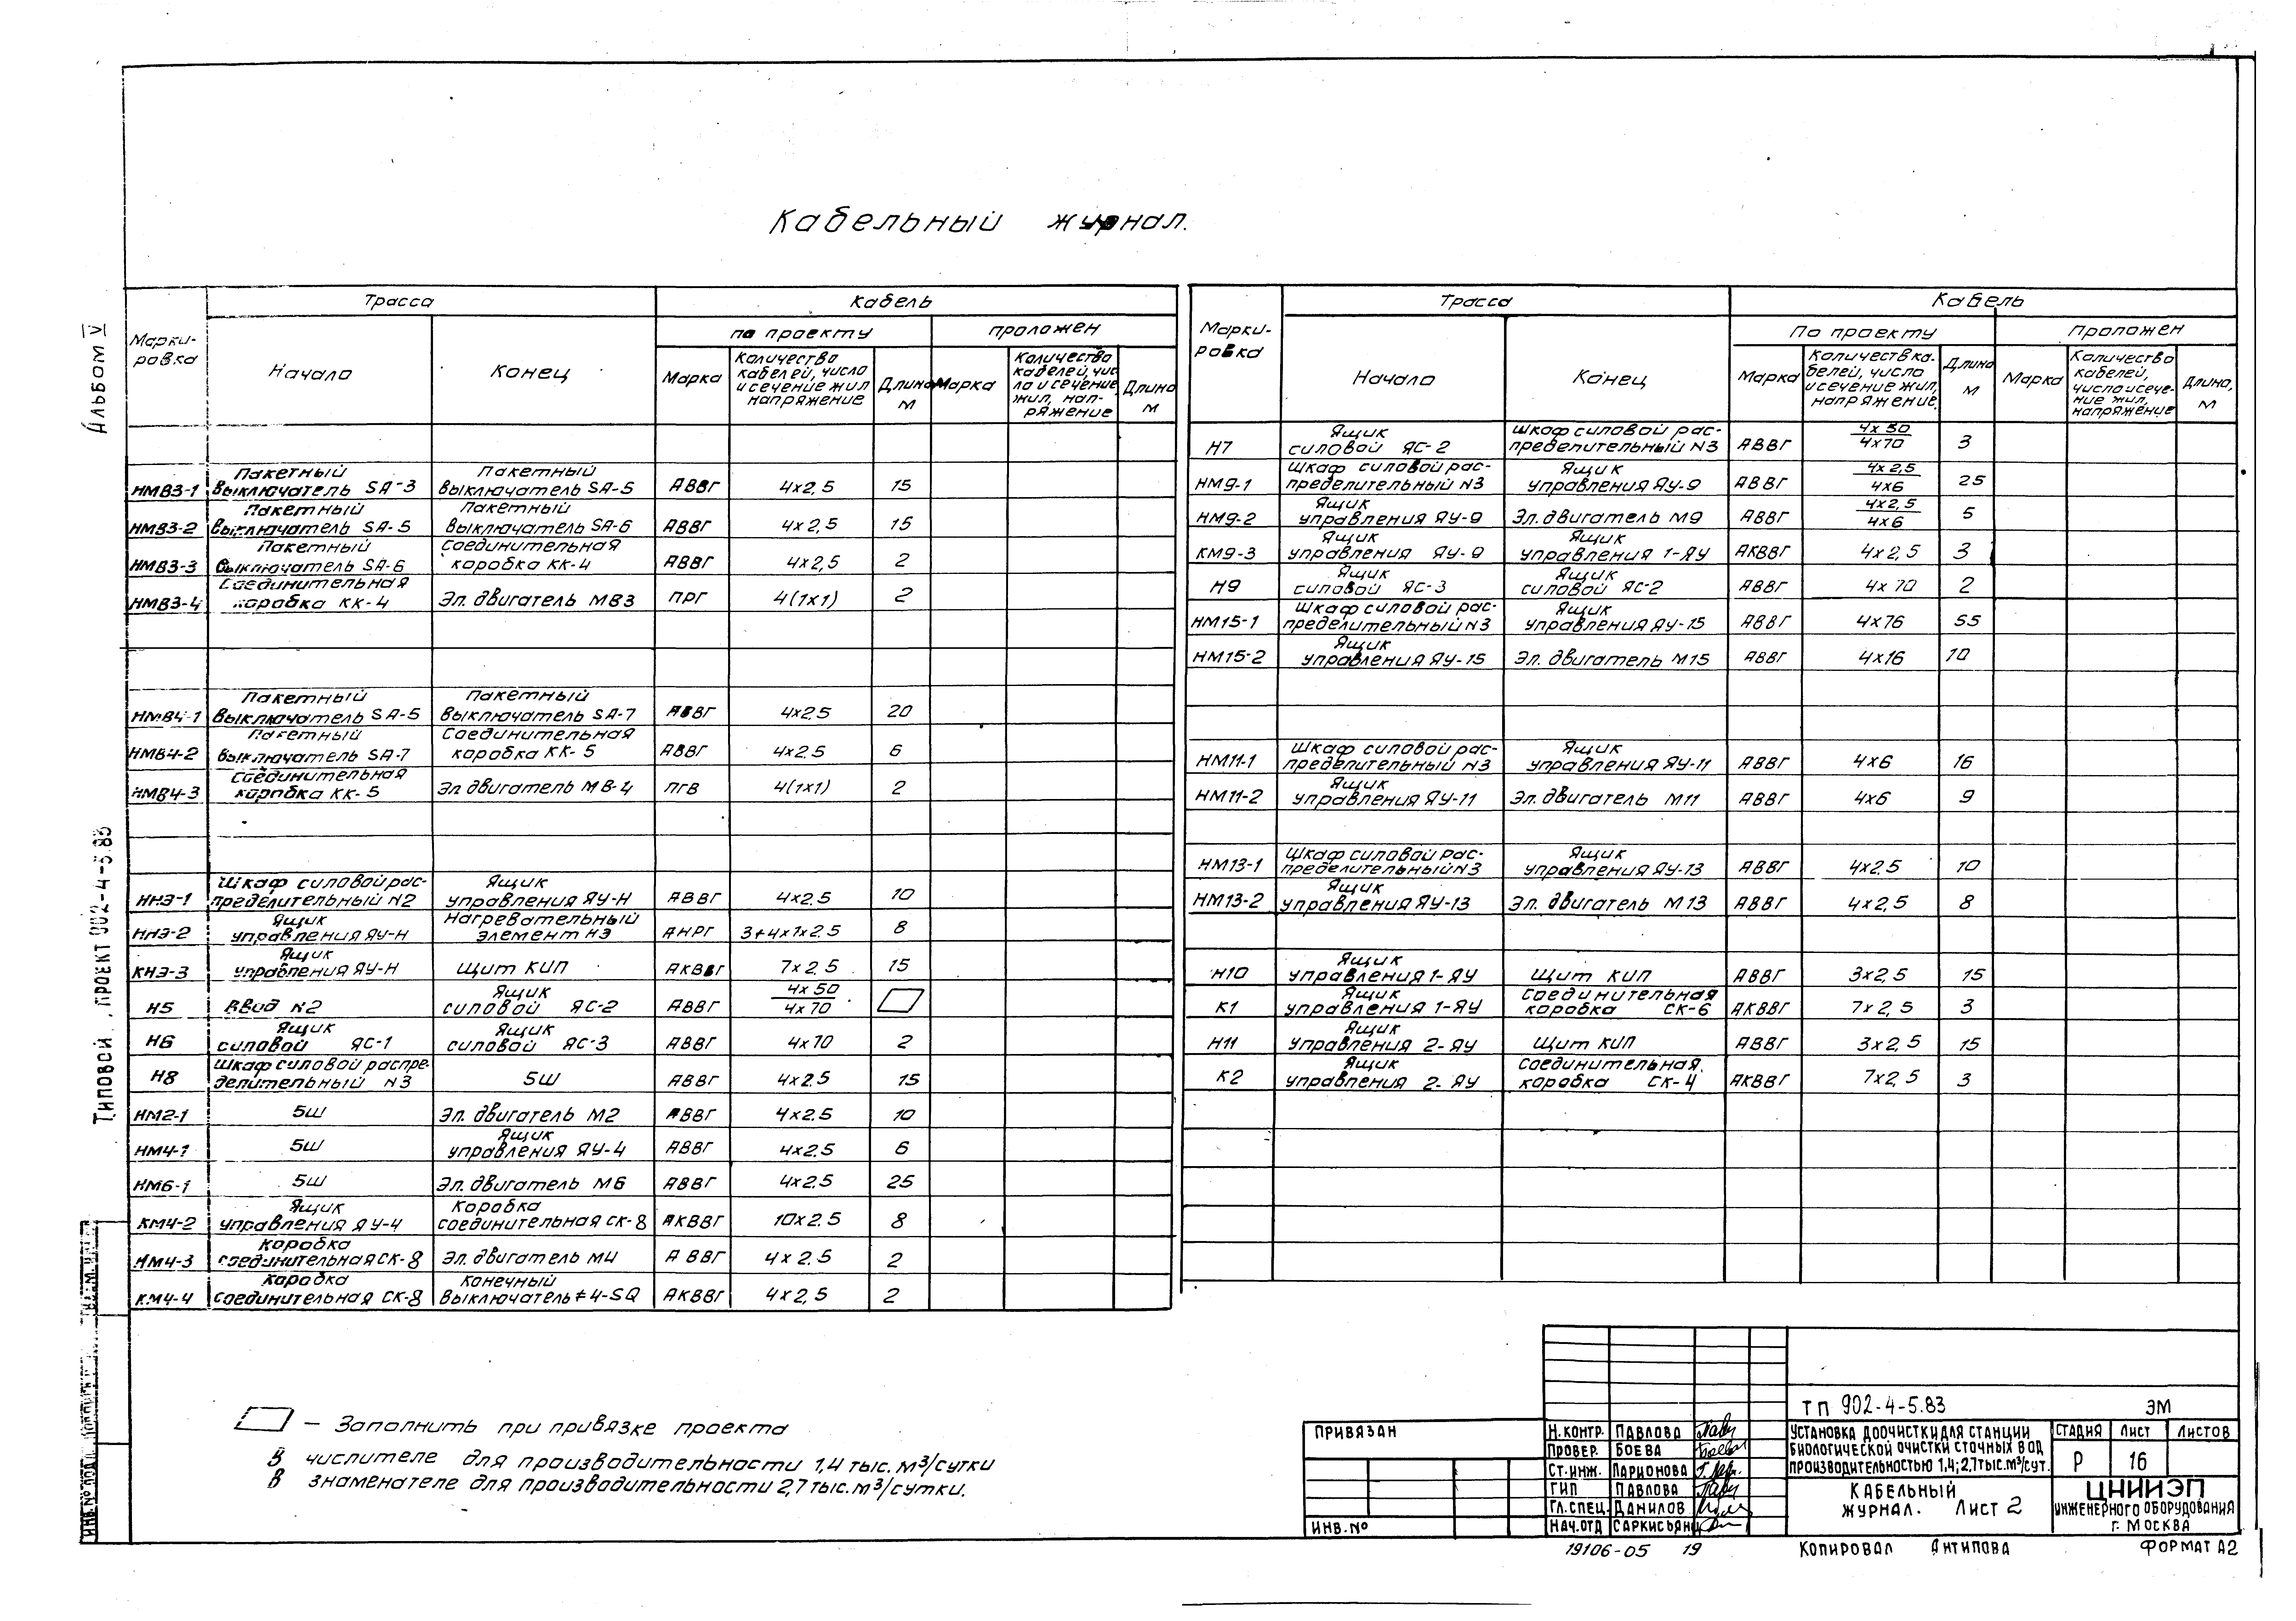 Кабельный журнал.
Альбом V
Типовой проект 902-4-5.83
Марки-
ровка
Трасса
Кабель
Начало
Конец
по проекту
проложен
Марка
Количество
кабелей, число
и сечение жил
напряжение
Длина
м
Марка
Количество
кабелей, чис
ло и сечение
жил, нап-
ряжение
Длина
м
НМВ3-1 Пакетный выключатель SA-3 Пакетный выключатель SA-5 АВВГ 4x2,5 15
НМВ3-2 Пакетный выключатель SA-5 Пакетный выключатель SA-6 АВВГ 4x2,5 15
НМВ3-3 Пакетный выключатель SA-6 Соединительная коробка КК-4 АВВГ 4x2,5 2
НМВ3-4 Соединительная коробка КК-4 Эл. двигатель МВ3 ПРГ 4(1x1) 2
НМВ4-1 Пакетный выключатель SA-5 Пакетный выключатель SA-7 АВВГ 4x2.5 20
НМВ4-2 Пакетный выключатель SA-7 Соединительная коробка КК-5 АВВГ 4x2.5 6
НМВ4-3 Соединительная коробка КК-5 Эл. двигатель МВ-4 ПГВ 4(1x1) 2
ННЭ-1 Шкаф силовой рас-пределительный N2 Ящик управления ЯУ-Н АВВГ 4x2.5 10
ННЭ-2 Ящик управления ЯУ-Н Нагревательный элемент НЭ АНРГ 3+4x1x2.5 8
КНЭ-3 Ящик управления ЯУ-Н Щит КИП АКВВГ 7x2.5 15
Н5 Ввод N2 Ящик силовой ЯС-2 АВВГ 4x50 4x70
Н6 Ящик силовой ЯС-1 Ящик силовой ЯС-3 АВВГ 4x70 2
Н8 Шкаф силовой распре-делительный N3 5Ш АВВГ 4x2.5 15
НМ2-1 5Ш Эл. двигатель М2 АВВГ 4x2.5 10
НМ4-1 5Ш Ящик управления ЯУ-4 АВВГ 4x2.5 6
НМ6-1 5Ш Эл. двигатель М6 АВВГ 4x2.5 25
КМ4-2 Ящик управления ЯУ-4 Коробка соединительная СК-8 АКВВГ 10x2.5 8
НМ4-3 Коробка соединительная СК-8 Эл. двигатель М4 АВВГ 4x2.5 2
КМ4-4 Коробка соединительная СК-8 Конечный выключатель ±4-SQ АКВВГ 4x2,5 2
Марки-
ровка
Трасса
Кабель
Начало
Конец
По проекту
Проложен
Марка
Количеств ка-
белей, число
и сечение жил,
напряжение.
Длина
м
Марка
Количество
кабелей,
число и сече-
ние жил,
напряжение
Длина,
м
Н7 Ящик силовой ЯС-2 Шкаф силовой рас-пределительный N3 АВВГ 4x50 4x70 3
НМ9-1 Шкаф силовой рас-пределительный N3 Ящик управления ЯУ-9 АВВГ 4x2,5 4x6 25
НМ9-2 Ящик управления ЯУ-9 Эл. двигатель М9 АВВГ 4x2,5 4x6 5
КМ9-3 Ящик управления ЯУ-9 Ящик управления 1-ЯУ АКВВГ 4x2,5 3
Н9 Ящик силовой ЯС-3 Ящик силовой ЯС-2 АВВГ 4x70 2
НМ15-1 Шкаф силовой рас-пределительный N3 Ящик управления ЯУ-15 АВВГ 4x16 55
НМ15-2 Ящик управления ЯУ-15 Эл. двигатель М15 АВВГ 4x16 10
НМ11-1 Шкаф силовой рас-пределительный N3 Ящик управления ЯУ-11 АВВГ 4x6 16
НМ11-2 Ящик управления ЯУ-11 Эл. двигатель М11 АВВГ 4x6 9
НМ13-1 Шкаф силовой рас-пределительный N3 Ящик управления ЯУ-13 АВВГ 4x2.5 10
НМ13-2 Ящик управления ЯУ-13 Эл. двигатель М13 АВВГ 4x2,5 8
Н10 Ящик управления 1-ЯУ Щит КИП АВВГ 3x2,5 15
К1 Ящик управления 1-ЯУ Соединительная коробка СК-6 АКВВГ 7x2,5 3
Н11 Ящик управления 2-ЯУ Щит КИП АВВГ 3x2,5 15
К2 Ящик управления 2-ЯУ Соединительная коробка СК-4 АКВВГ 7x2,5 3
– Заполнить при привязке проекта
В числителе для производительности 1,4 тыс. м³/сутки
В знаменателе для производительности 2,7 тыс. м³/сутки.
Привязан
Инв.№
Н.контр. Павлова
Провер. Боева
Ст.инж. Ларионова
ГИП Павлова
Гл.спец. Данилов
Нач.отд Саркисьян
ТП 902-4-5.83 ЭМ
Установка доочистки для станции
биологической очистки сточных вод
производительностью 1,4; 2,7 тыс. м³/сут.
Стадия Лист Листов
Р 16
Кабельный
журнал. Лист 2
ЦНИИЭП
инженерного оборудования
г. Москва
19106-05 19
Копировал Антипова
Формат А2